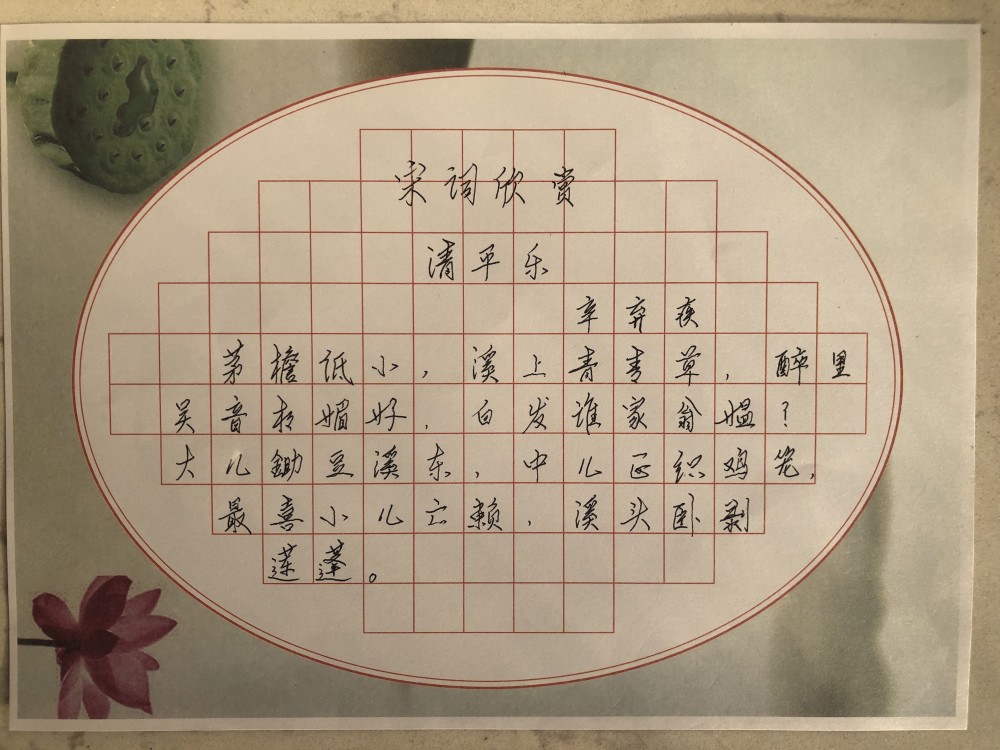 宋词欣赏
清平乐
辛弃疾
茅檐低小，溪上青青草，醉里
吴音相媚好，白发谁家翁媪？
大儿鋤豆溪东，中儿正织鸡笼，
最喜小儿亡赖，溪头卧剥
莲蓬。